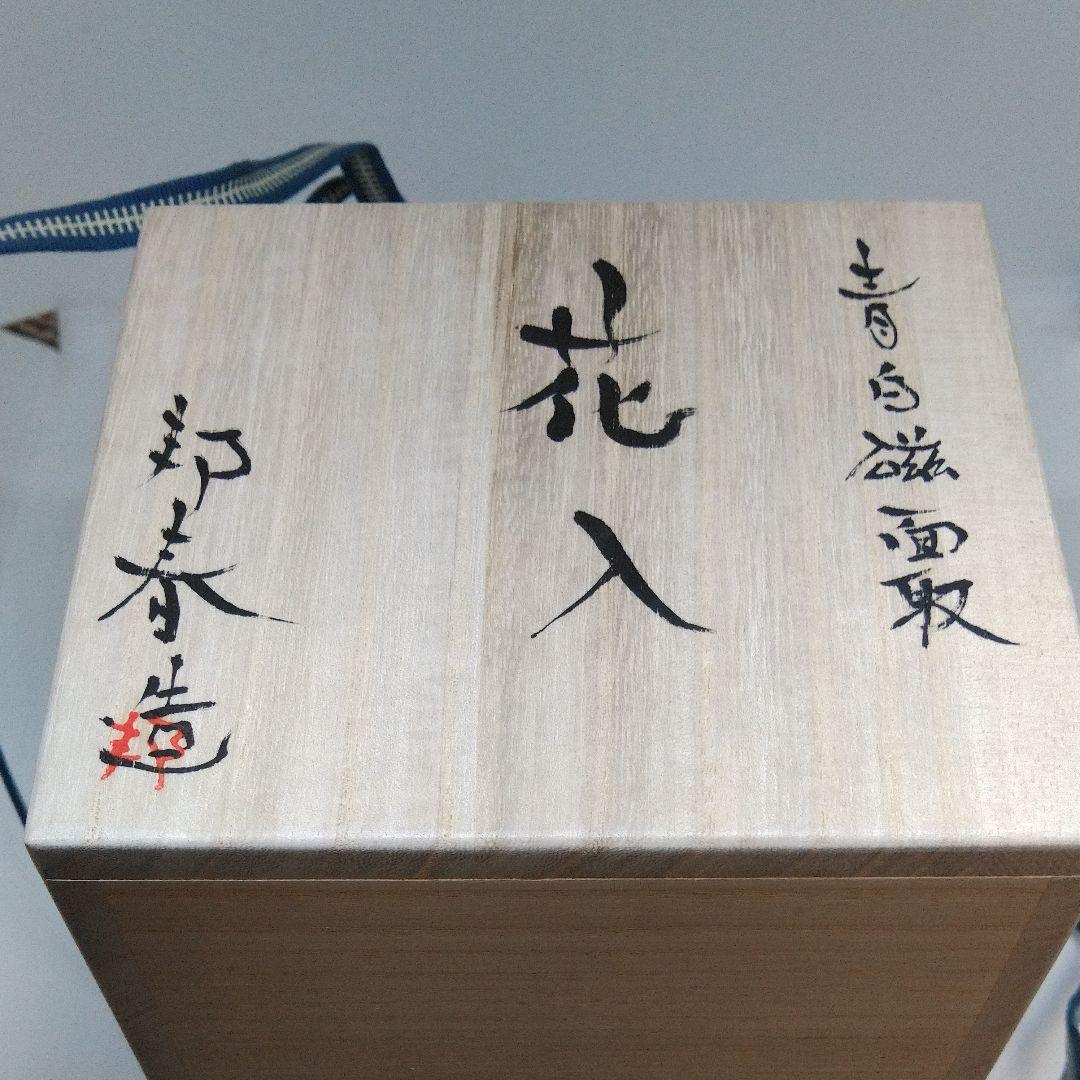 青白磁面取
花入
邦春造
邦